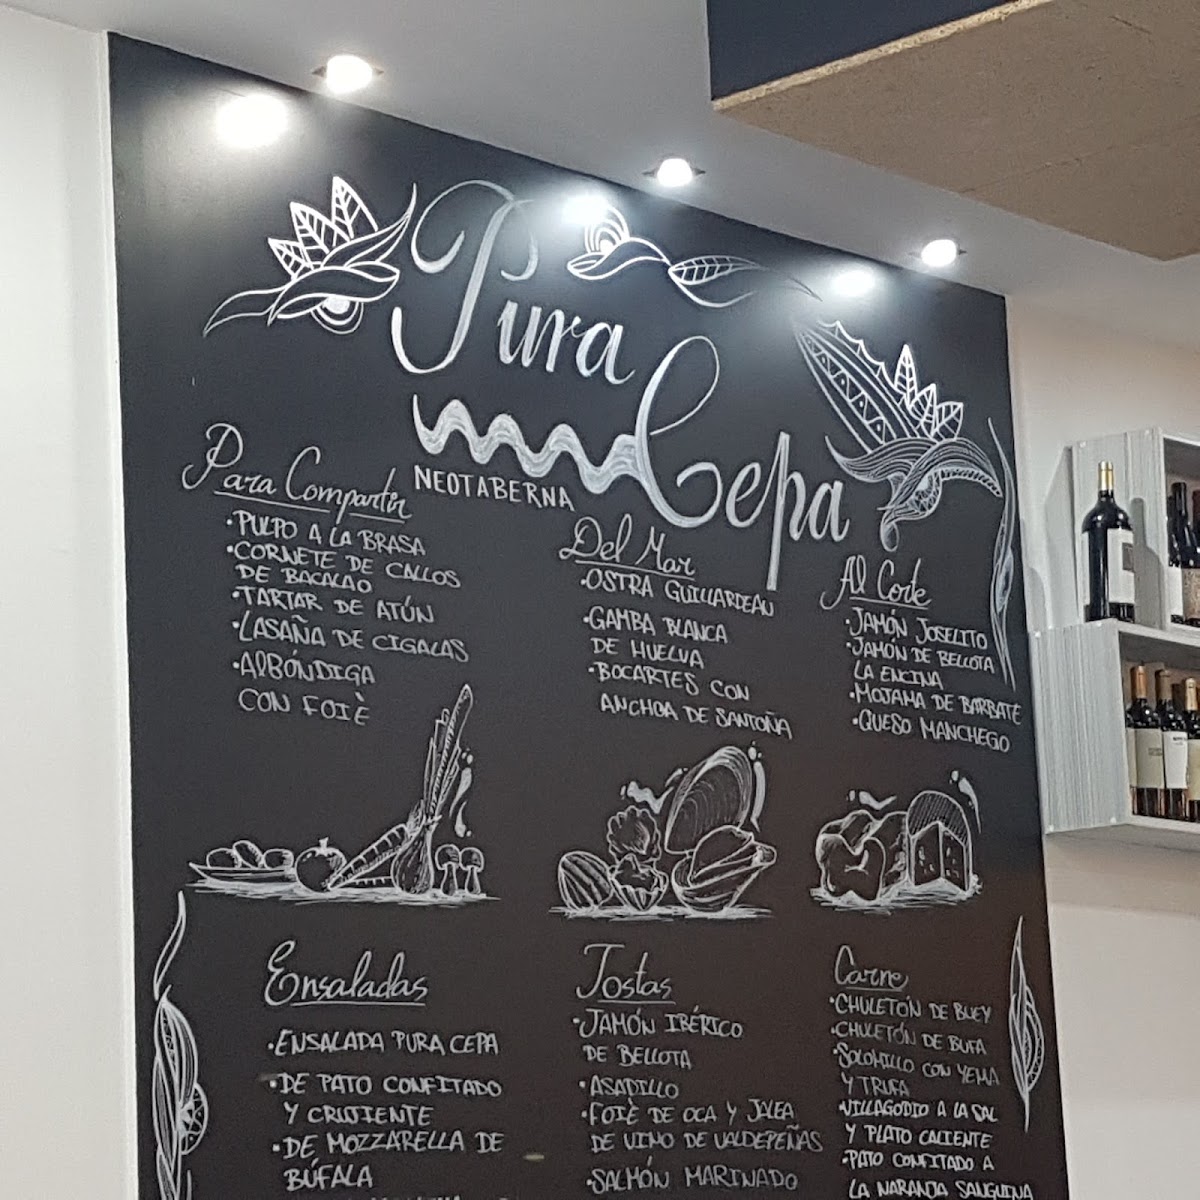 Pura
Cepa
NEOTABERNA
Para Compartir
·PULPO A LA BRASA
·CORNETE DE CALLOS
DE BACALAO
·TARTAR DE ATÚN
·LASAÑA DE CIGALAS
·ALBÓNDIGA
CON FOIÈ
Del Mar
·OSTRA GUILLARDEAU
·GAMBA BLANCA
DE HUELVA
·BOCARTES CON
ANCHOA DE SANTOÑA
Al Corte
·JAMÓN JOSELITO
·JAMÓN DE BELLOTA
LA ENCINA
·MOJAMA DE BARBATE
·QUESO MANCHEGO
Ensaladas
·ENSALADA PURA CEPA
·DE PATO CONFITADO
Y CRUJIENTE
·DE MOZZARELLA DE
BÚFALA
Tostas
·JAMÓN IBÉRICO
DE BELLOTA
·ASADILLO
·FOIÈ DE OCA Y JALEA
DE VINO DE VALDEPEÑAS
·SALMÓN MARINADO
Carne
·CHULETÓN DE BUEY
·CHULETÓN DE BUFA
·SOLOMILLO CON YEMA
Y TRUFA
·VILLAGODIO A LA SAL
Y PLATO CALIENTE
·PATO CONFITADO A
LA NARANJA SANGUINA